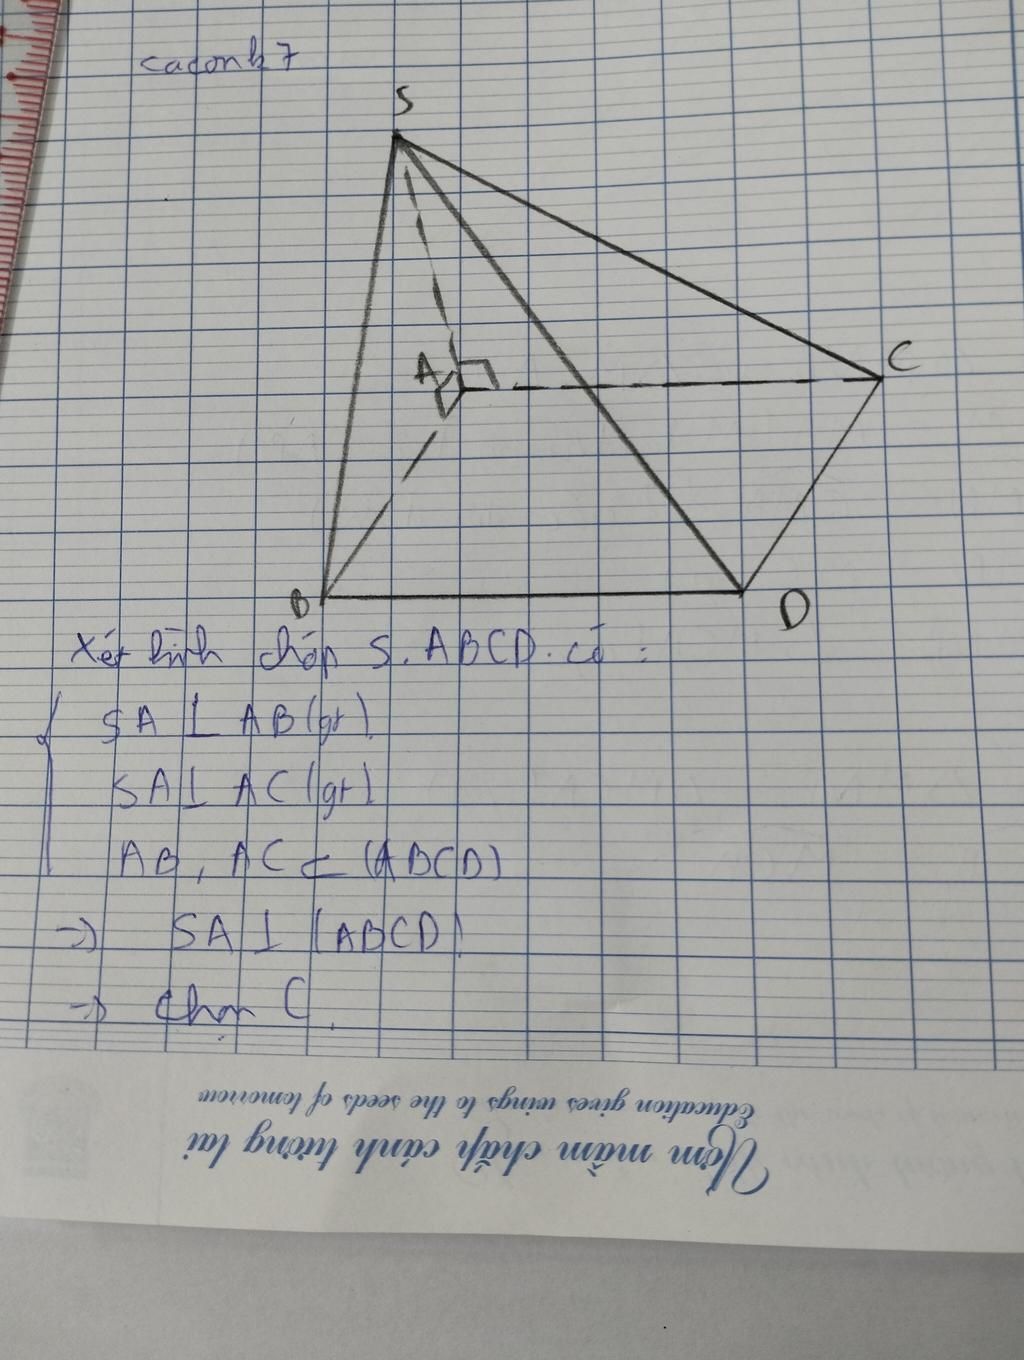 S
A
C
B
D
Xét hình chóp S.ABCD. có :
SA ⊥ AB (gt)
SA ⊥ AC (gt)
AB, AC ⊂ (ABCD)
=> SA ⊥ (ABCD)
=> Chọn C.
Ươm mầm chắp cánh tương lai
Education gives wings to the seeds of tomorrow